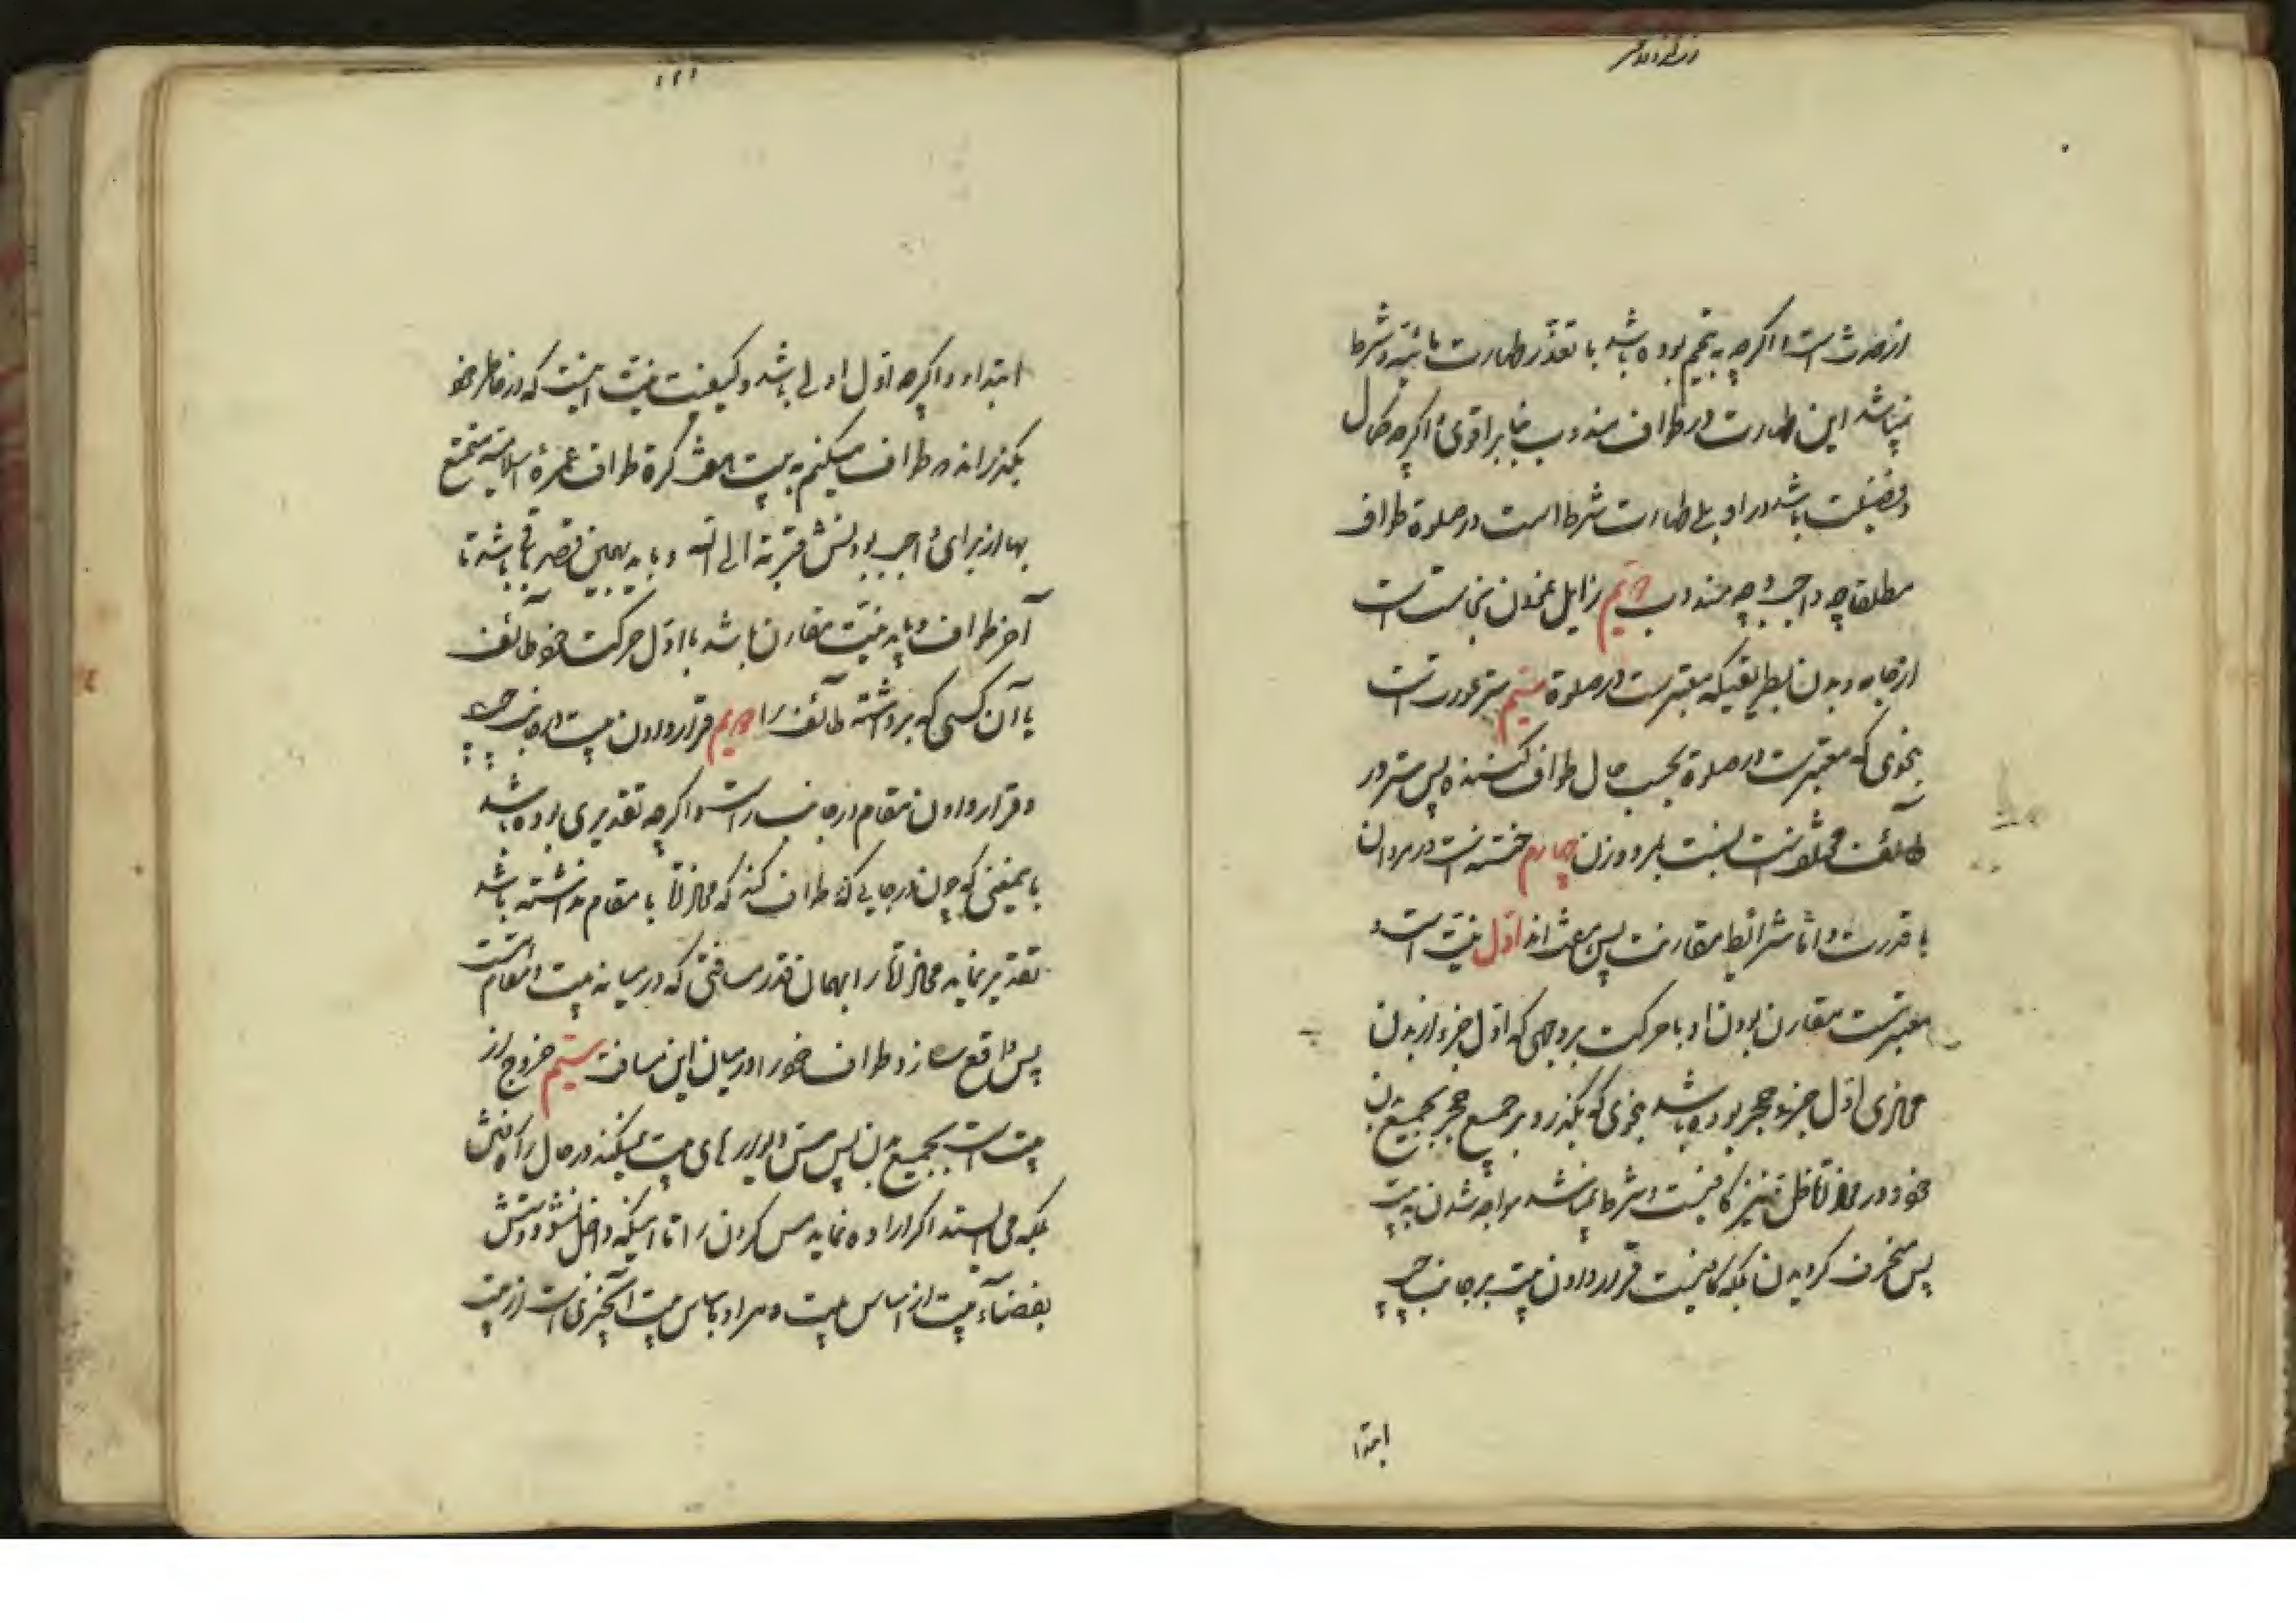 از حدث است و اگرچه به تیمم بوده باشد با تعذر طهارت مائیه و شرط
نمیباشد این طهارت در طواف مندوب بنا بر اقوی و اگرچه کمال
و فضیلت باشد در او بلی طهارت شرط است در صلوة طواف
مطلقا چه واجب و چه مندوب دویم زایل نمودن نجاست است
از جامه و بدن بطریقیکه معتبر است در صلوة سیم ستر عورت است
بنحوی که معتبر است در صلوة بحسب حال طواف کننده پس ستر در
طائف مختلف است نسبت بمرد و زن چهارم ختنه است در مردان
با قدرت و اما شرائط مقارنت پس هشت اند اول نیت است و
معتبر است مقارن بودن او با حرکت بر وجهی که اول جزء از بدن
محاذی اول جزء حجر بوده باشد بنحوی که بگذرد بر جمیع حجر بجمیع بدن
خود و در محاذاة ظن نیز کافیست و شرط نمیباشد مواجه شدن به بیت
پس منحرف گردیدن بلکه کافیست قرار دادن بیت بر جانب چپ
ابتدا
ابتداء و اگرچه اول اولی باشد و کیفیت نیت اینست که در خاطر خود
بگذراند که طواف میکنم به بیت هفت کرة طواف عمرة اسلامیه تمتع
بها از برای واجب بودنش قربة الی الله و باید بهمین قصد باقی باشد تا
آخر طواف و باید نیت مقارن باشد با اول حرکت خود طائف
یا آن کسی که برداشته طائف را دویم قرار دادن بیت در جانب چپ
و قرار دادن مقام در جانب راست و اگرچه تقدیری بوده باشد
باینمعنی که چون در جایی که طواف کند که محاذاة با مقام نداشته باشد
تقدیر نماید محاذاة را بهمان قدر مسافتی که در میانه بیت و مقام است
پس واقع سازد طواف خود را در میان این مسافت سیم خروج از
بیت است بجمیع بدن پس مس دیوارهای بیت نمیکند در حال راه رفتن
بلکه می ایستد اگر اراده نماید مس کردن را تا اینکه داخل نشود دستش
بفضاء بیت از اساس بیت و مراد باساس بیت آنچیزی است از بیت